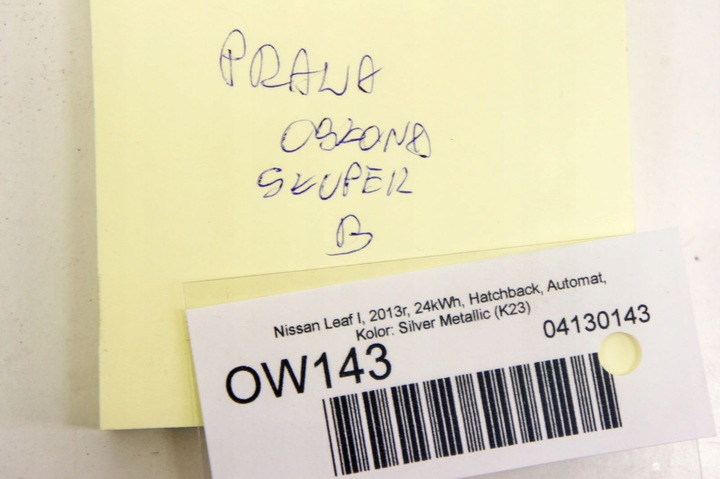 PRAWA
OSŁONA
SŁUPEK
B
Nissan Leaf I, 2013r, 24kWh, Hatchback, Automat,
Kolor: Silver Metallic (K23)
OW143
04130143